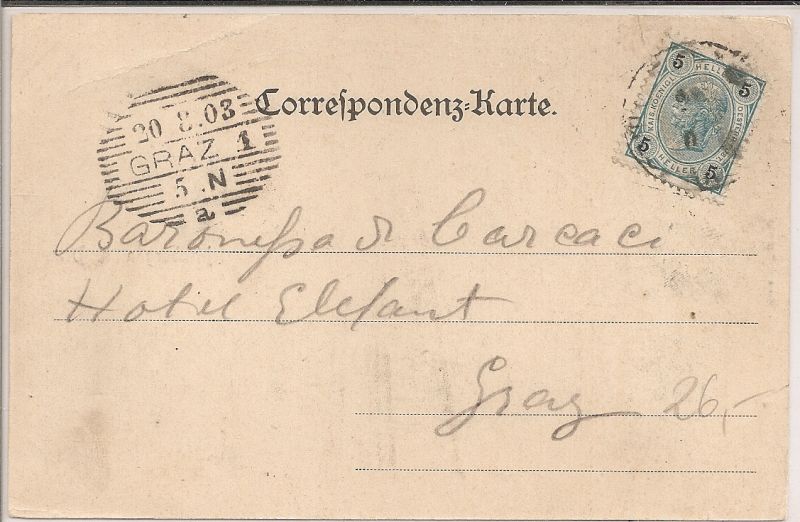 Correspondenz-Karte.
20 8.03
GRAZ 1
5 .N
a
5 HELLER 5
KAIS.KOENIGL
5 HELLER 5
Baronessa di Carcaci
Hotel Elefant
Graz 26,-